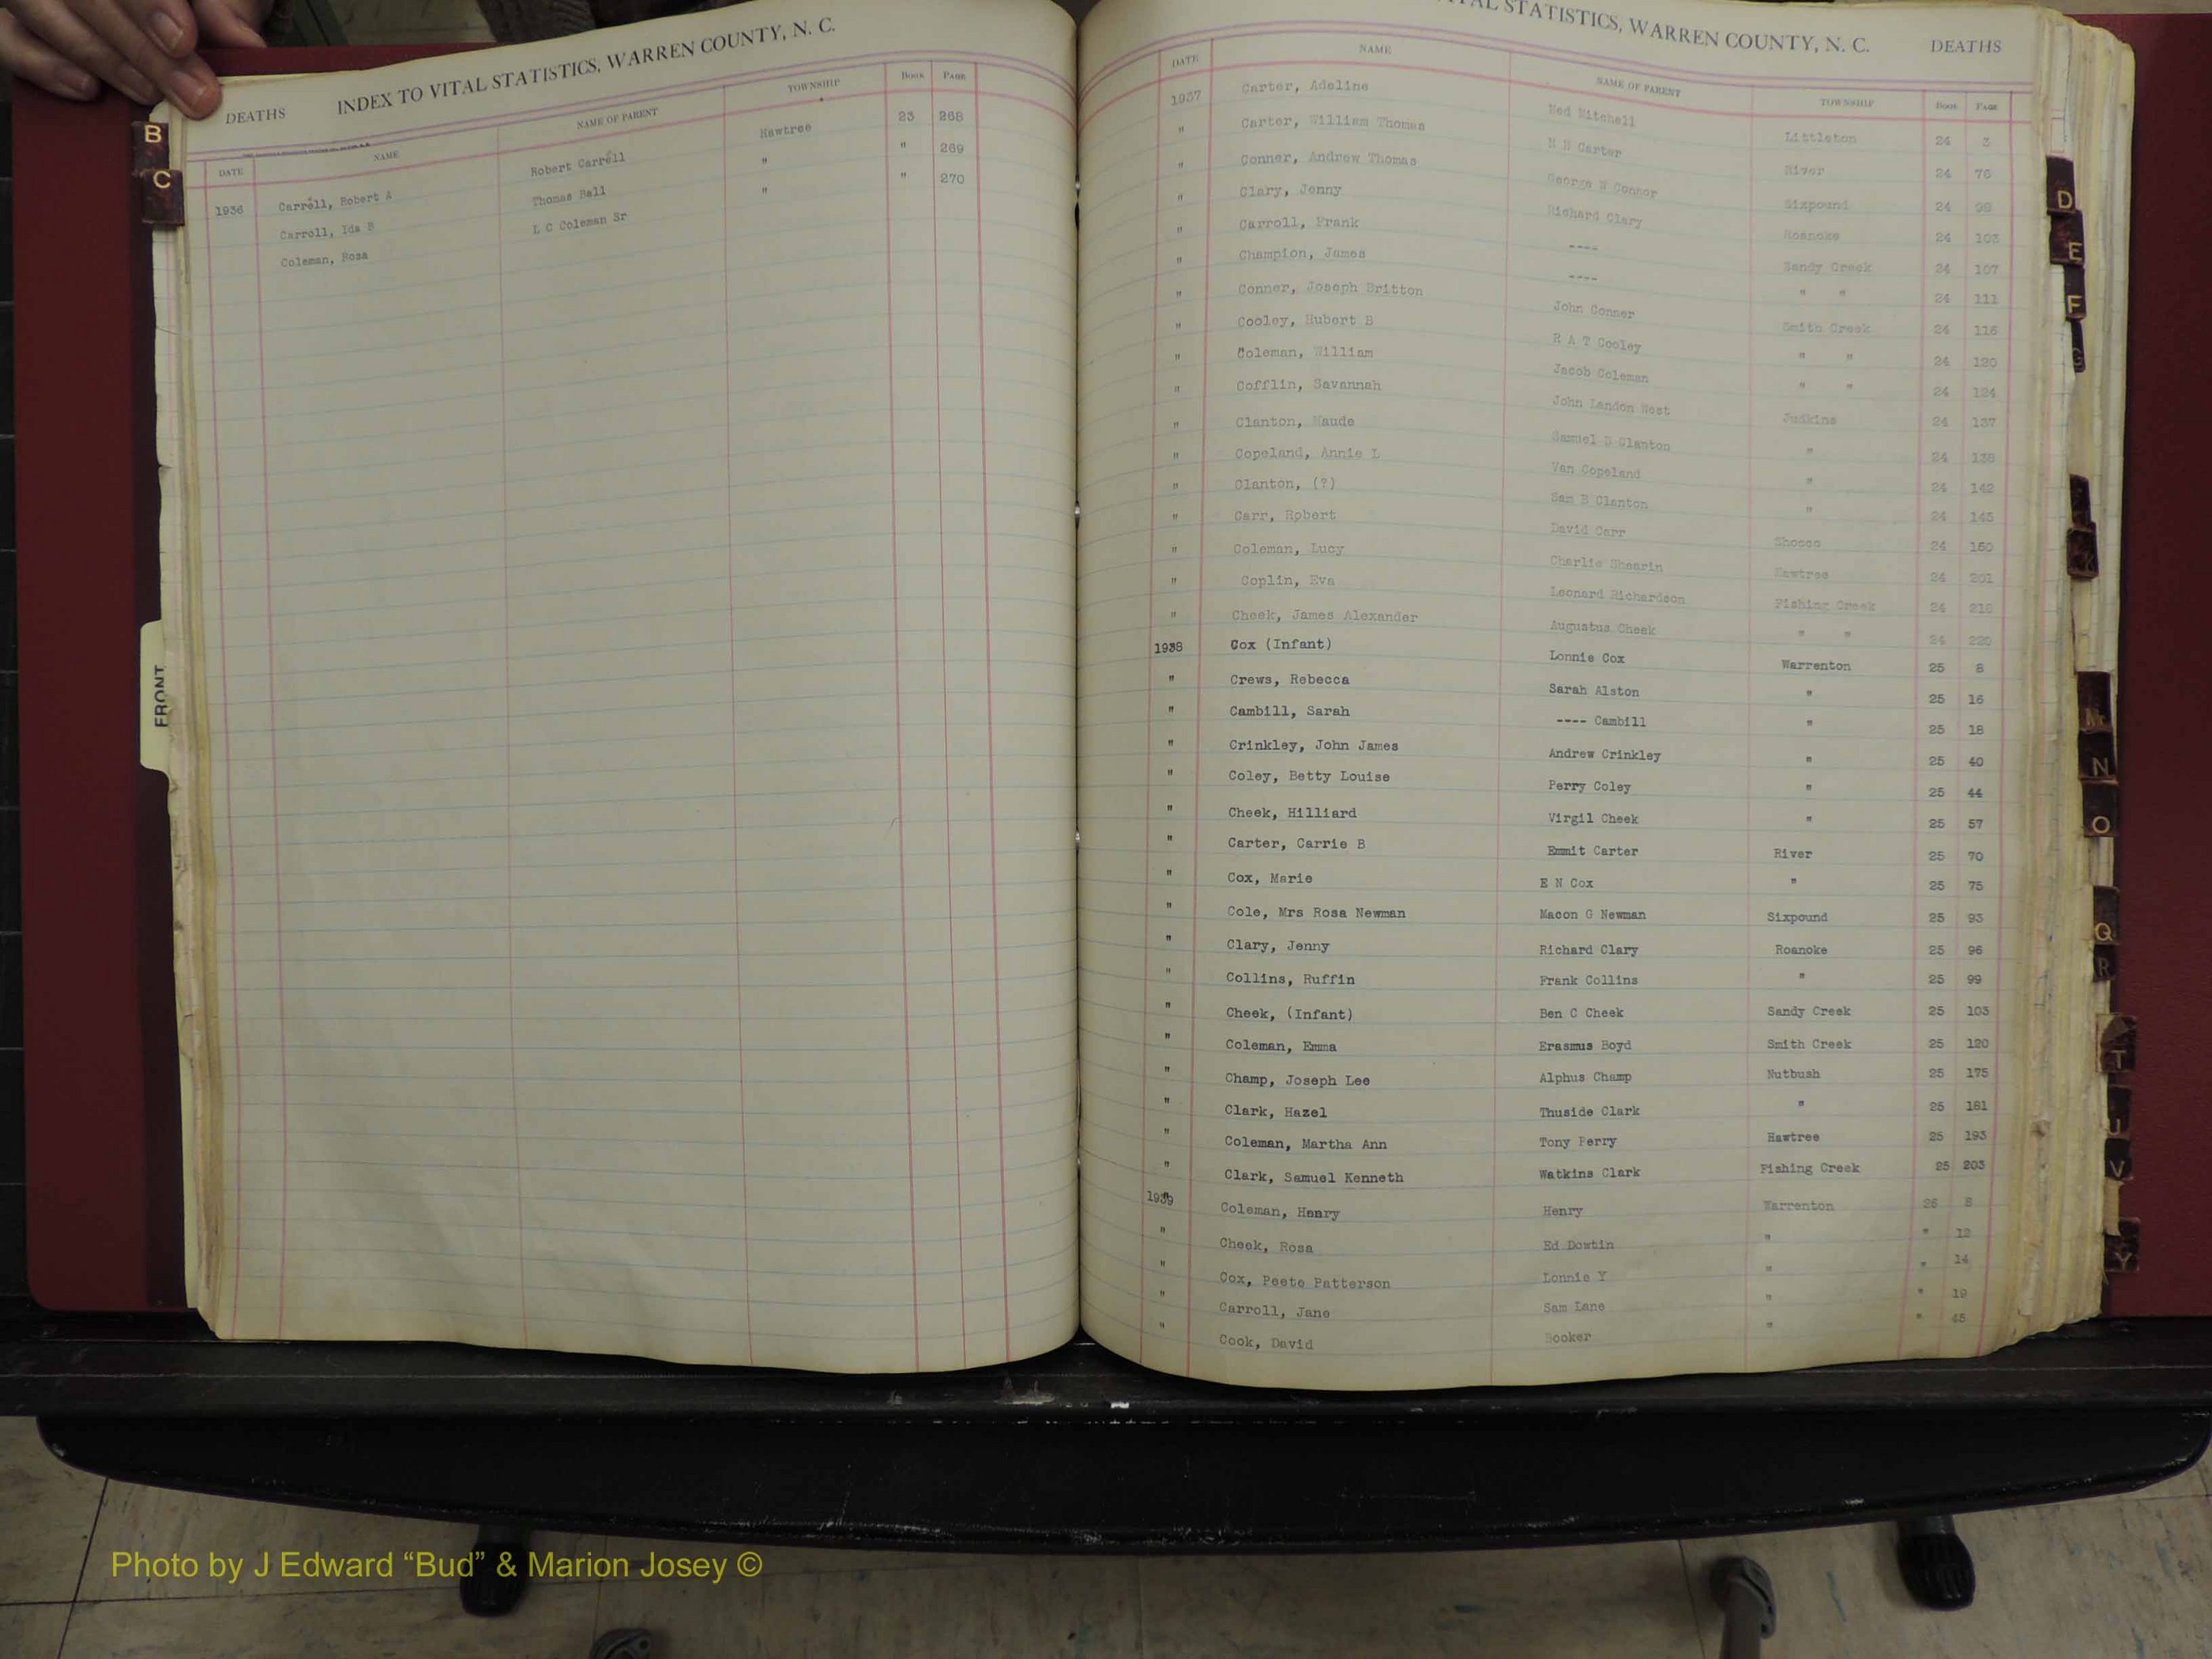 DEATHS INDEX TO VITAL STATISTICS, WARREN COUNTY, N. C.
DATE NAME NAME OF PARENT TOWNSHIP BOOK PAGE
1936 Carroll, Robert A Robert Carroll Hawtree 23 268
Carroll, Ida B Thomas Ball " " 269
Coleman, Rosa L C Coleman Sr " " 270
B
C
FRONT
VITAL STATISTICS, WARREN COUNTY, N. C. DEATHS
DATE NAME NAME OF PARENT TOWNSHIP BOOK PAGE
1937 Carter, Adeline Ned Mitchell Littleton 24 3
" Carter, William Thomas Carter River 24 76
" Conner, Andrew Thomas George W Connor Sixpound 24 98
" Clary, Jenny Richard Clary Roanoke 24 103
" Carroll, Frank ---- Sandy Creek 24 107
" Champion, James ---- " " 24 111
" Conner, Joseph Britton John Conner Smith Creek 24 116
" Cooley, Hubert B R A T Cooley " " 24 120
" Coleman, William Jacob Coleman " " 24 124
" Cofflin, Savannah John Landon West Judkins 24 137
" Clanton, Maude Samuel B Clanton " 24 138
" Copeland, Annie L Van Copeland " 24 142
" Clanton, (?) Sam B Clanton " 24 145
" Carr, Robert David Carr Shocco 24 150
" Coleman, Lucy Charlie Shearin Hawtree 24 201
" Coplin, Eva Leonard Richardson Fishing Creek 24 218
" Cheek, James Alexander Augustus Cheek " " 24 220
1938 Cox (Infant) Lonnie Cox Warrenton 25 8
" Crews, Rebecca Sarah Alston " 25 16
" Cambill, Sarah ---- Cambill " 25 18
" Crinkley, John James Andrew Crinkley " 25 40
" Coley, Betty Louise Perry Coley " 25 44
" Cheek, Hilliard Virgil Cheek " 25 57
" Carter, Carrie B Emmit Carter River 25 70
" Cox, Marie E N Cox " 25 75
" Cole, Mrs Rosa Newman Macon G Newman Sixpound 25 93
" Clary, Jenny Richard Clary Roanoke 25 96
" Collins, Ruffin Frank Collins " 25 99
" Cheek, (Infant) Ben C Cheek Sandy Creek 25 103
" Coleman, Emma Erasmus Boyd Smith Creek 25 120
" Champ, Joseph Lee Alphus Champ Nutbush 25 175
" Clark, Hazel Thuside Clark " 25 181
" Coleman, Martha Ann Tony Perry Hawtree 25 193
" Clark, Samuel Kenneth Watkins Clark Fishing Creek 25 203
1939 Coleman, Henry Henry Warrenton 26 8
" Cheek, Rosa Ed Dowtin " " 12
" Cox, Peete Patterson Lonnie Y " " 14
" Carroll, Jane Sam Lane " " 19
" Cook, David Booker " " 45
D
E
F
G
K
M
N
O
Q
R
T
U
V
Y
Photo by J Edward “Bud” & Marion Josey ©